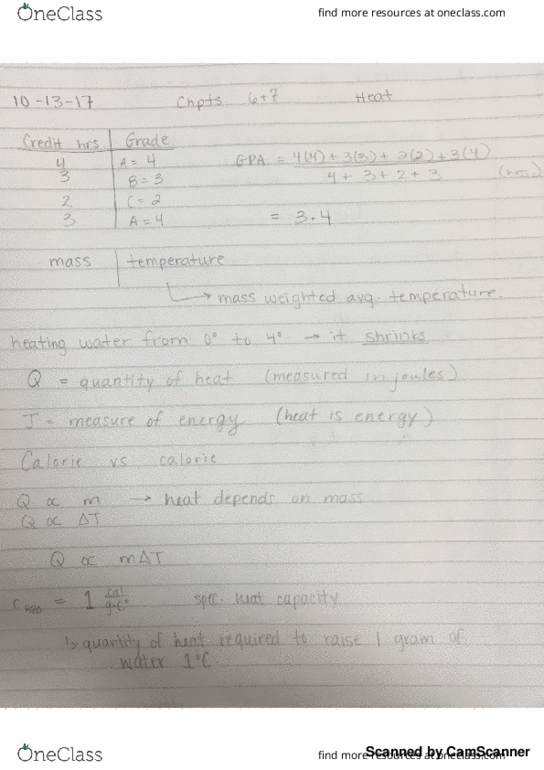 OneClass find more resources at oneclass.com
10-13-17 Chpts 6+7 Heat
Credit hrs Grade
4 A = 4 GPA = 4(4) + 3(3) + 2(2) + 3(4)
3 B = 3 4 + 3 + 2 + 3 (hrs)
2 C = 2
3 A = 4 = 3.4
mass temperature
→ mass weighted avg. temperature.
heating water from 0° to 4° → it shrinks
Q = quantity of heat (measured in joules)
J = measure of energy (heat is energy)
Calorie vs calorie
Q ∝ m → heat depends on mass
Q ∝ ΔT
Q ∝ mΔT
= 1 cal/g·C° spec. heat capacity
↳ quantity of heat required to raise 1 gram of
water 1°C.
OneClass find more resources at oneclass.com
Scanned by CamScanner